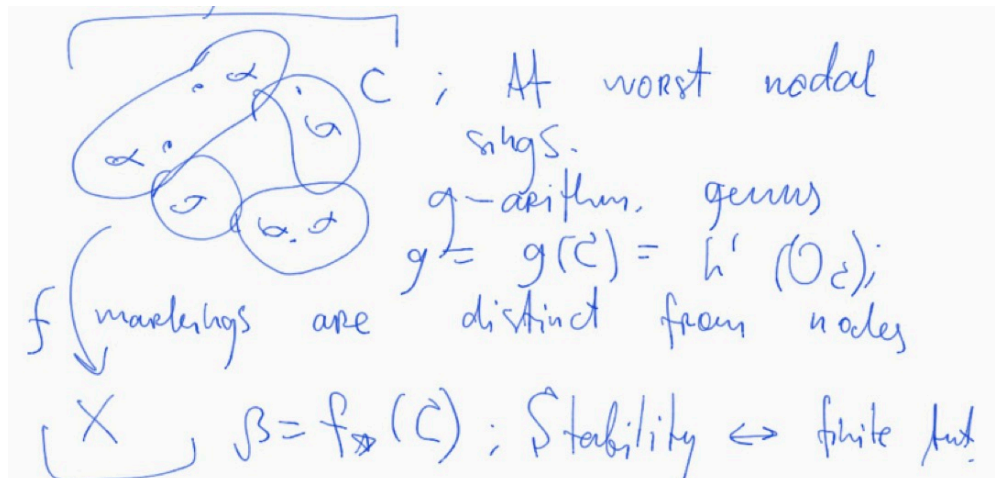 C ; At worst nodal
sings.
g-arithm. genus
g = g(C) = h¹ (O_C);
f markings are distinct from nodes
X β = f_* (C) ; Stability ↔ finite Aut.